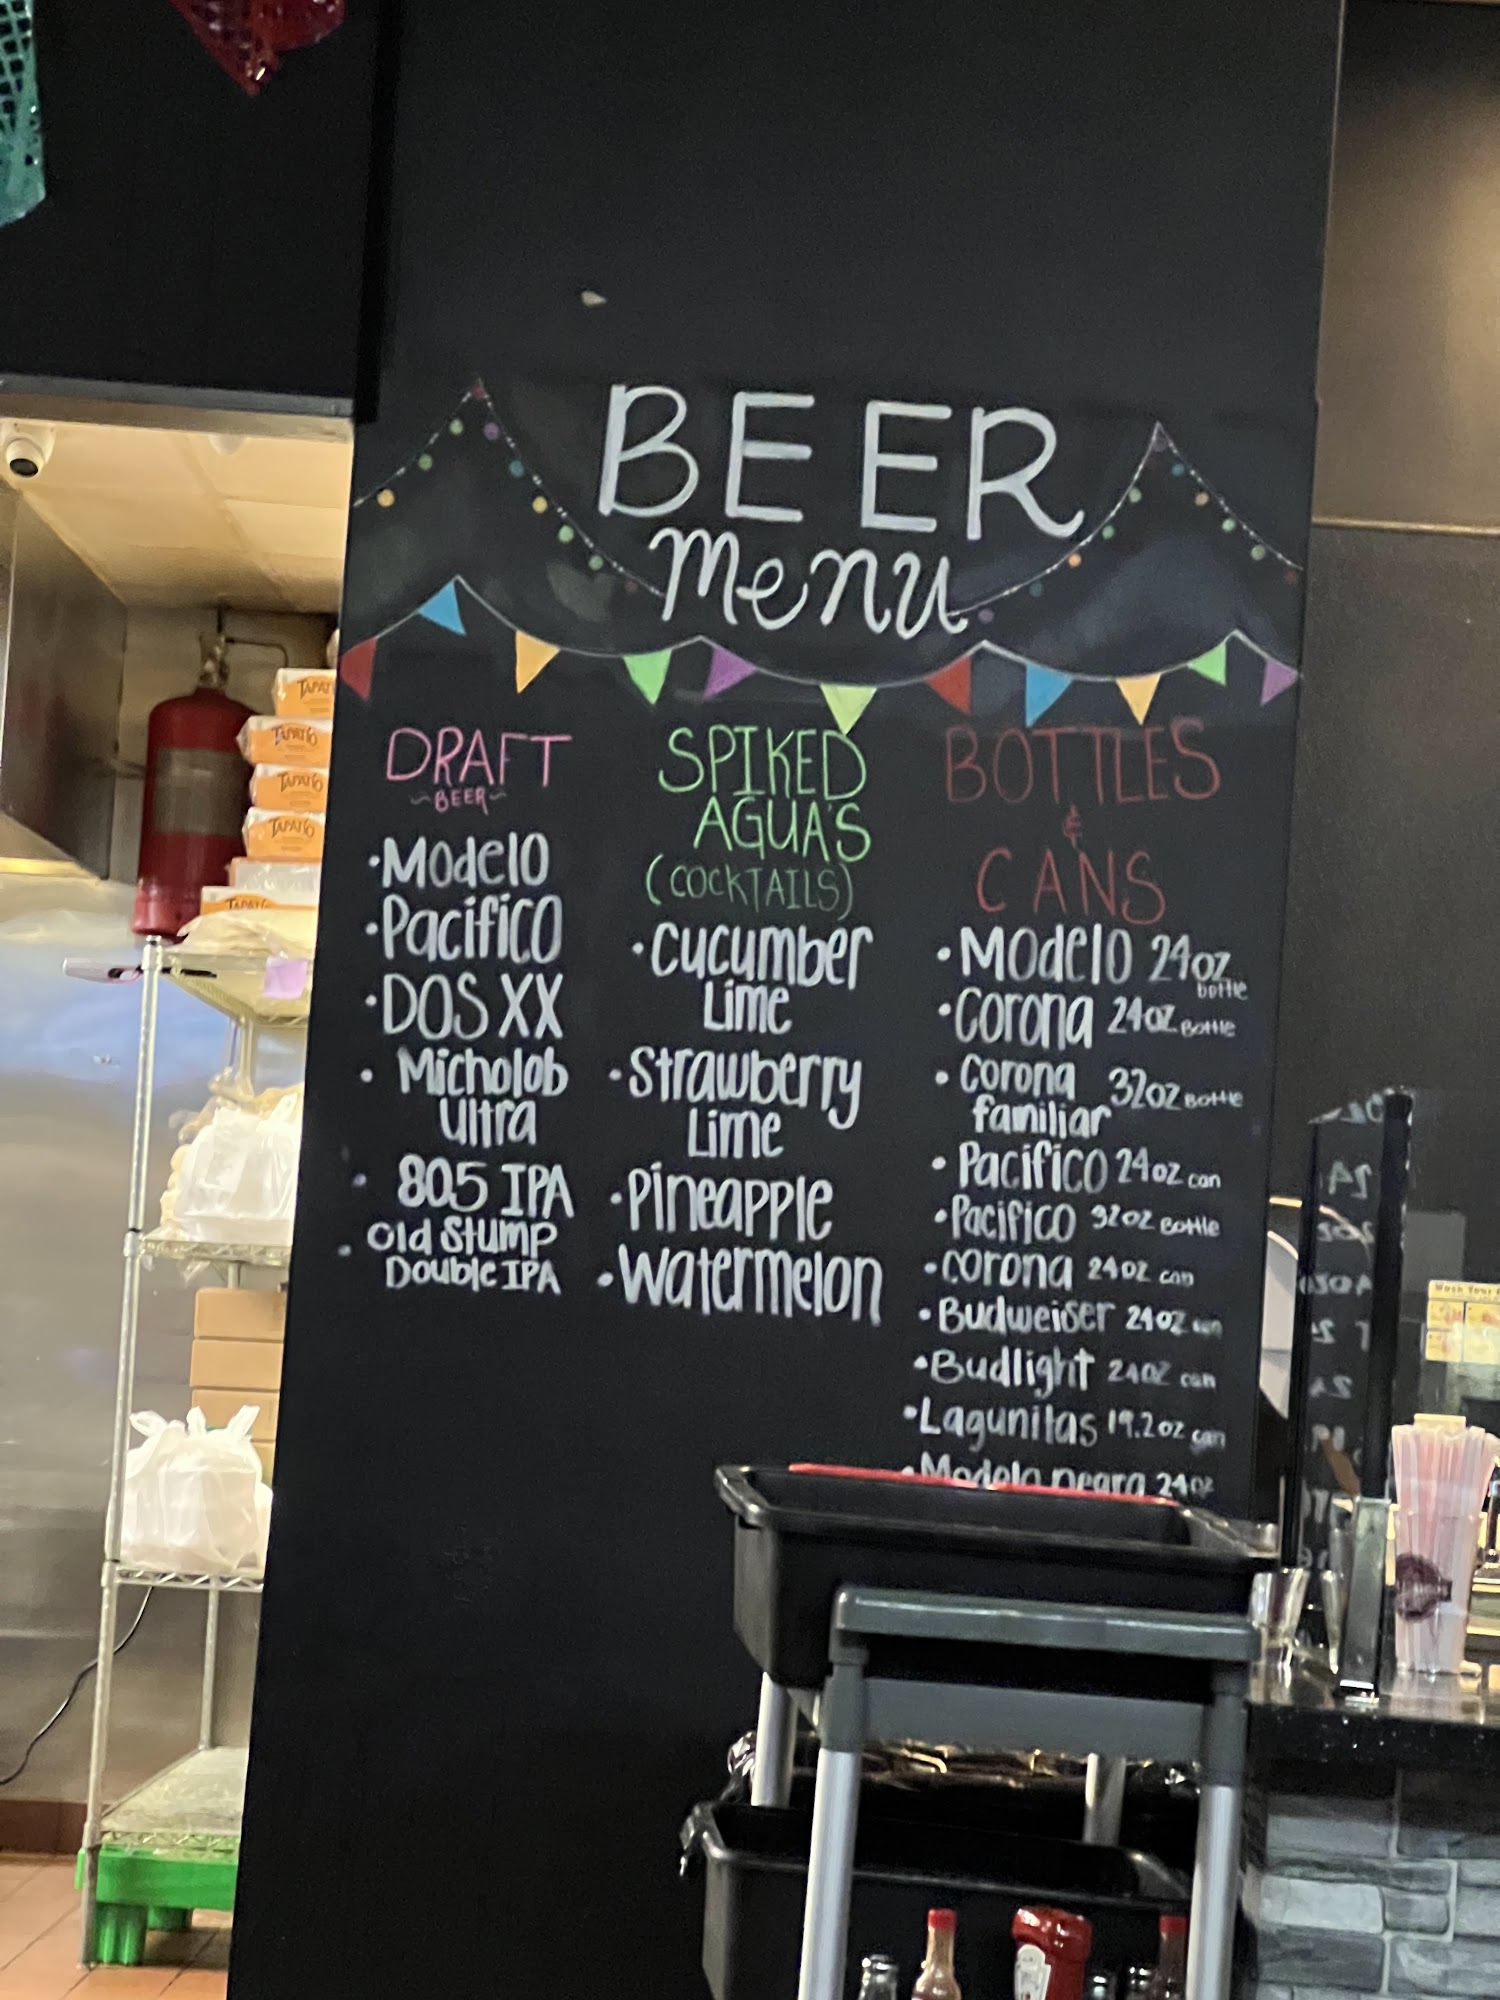 BEER
Menu
DRAFT
~BEER~
•Modelo
•Pacifico
•DOS XX
• Micholob
Ultra
• 805 IPA
• Old Stump
Double IPA
SPIKED
AGUA'S
(COCKTAILS)
•Cucumber
Lime
•Strawberry
Lime
•Pineapple
•Watermelon
BOTTLES
&
CANS
•Modelo 24oz
bottle
•Corona 24oz Bottle
• Corona 32oz Bottle
familiar
• Pacifico 24oz can
•Pacifico 32oz Bottle
•corona 24oz can
• Budweiser 24oz can
•Budlight 24oz can
•Lagunitas 19.2oz can
•Modelo negra 24oz
TAPATÍO
TAPATÍO
TAPATÍO
TAPATÍO
TAPATÍO
Wash Your